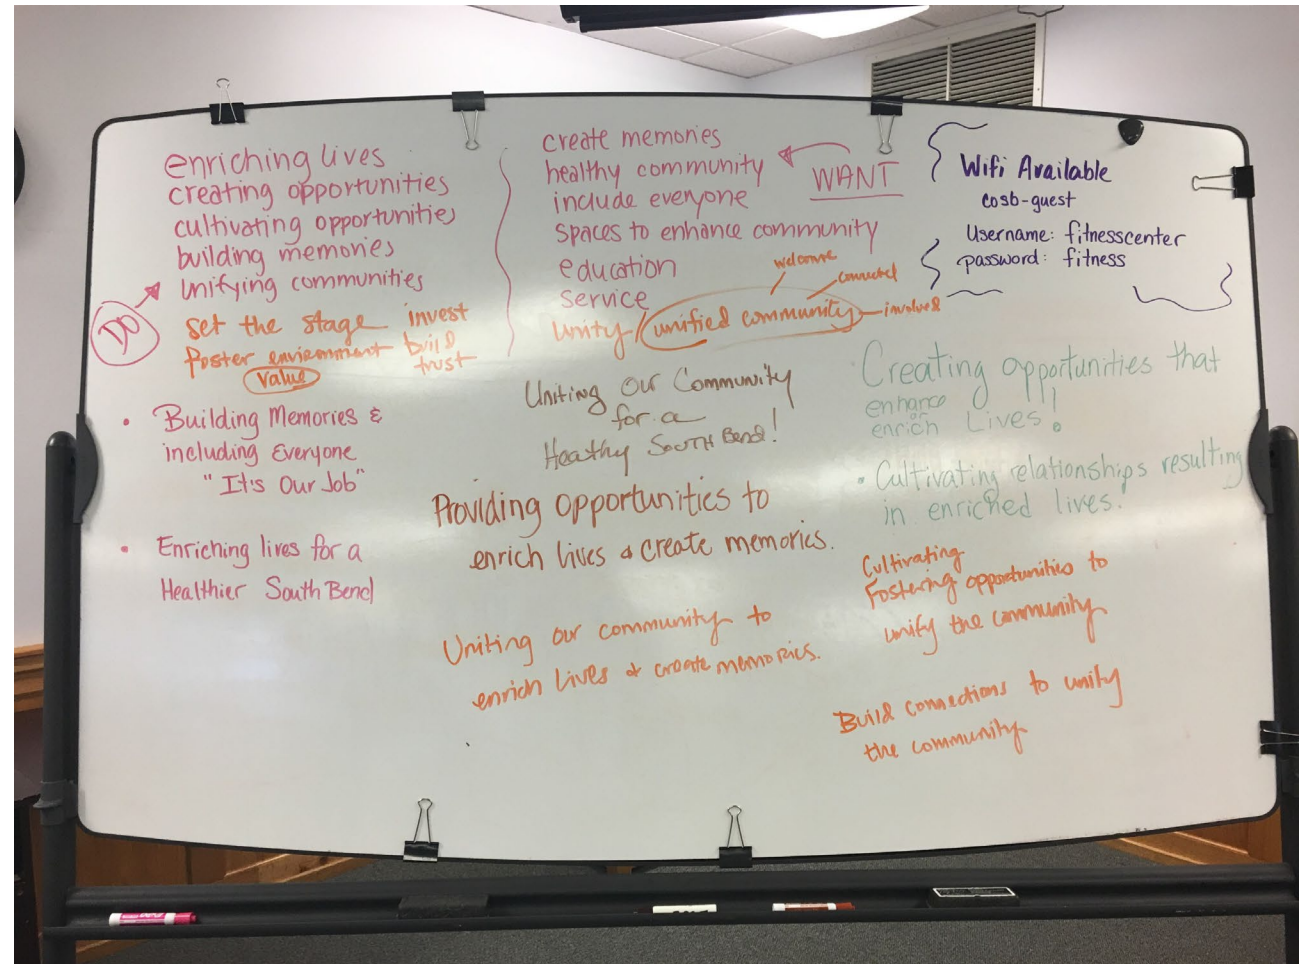 enriching lives
creating opportunities
cultivating opportunities
building memories
unifying communities
DO
set the stage invest
foster enviornment build
value trust
• Building Memories &
including Everyone
"It's Our Job"
• Enriching lives for a
Healthier South Bend
create memories
healthy community
include everyone
spaces to enhance community
education
service
WANT
Unity / unified community
welcome
connected
involved
Uniting Our Community
for a
Healthy South Bend!
Providing opportunities to
enrich lives & create memories.
Uniting our community to
enrich lives & create memories.
Wifi Available
cosb-guest
Username: fitnesscenter
password: fitness
• Creating opportunities that
enhance
or
enrich Lives!
• Cultivating relationships resulting
in enriched lives!
Cultivating
Fostering opportunities to
unify the community
Build connections to unify
the community